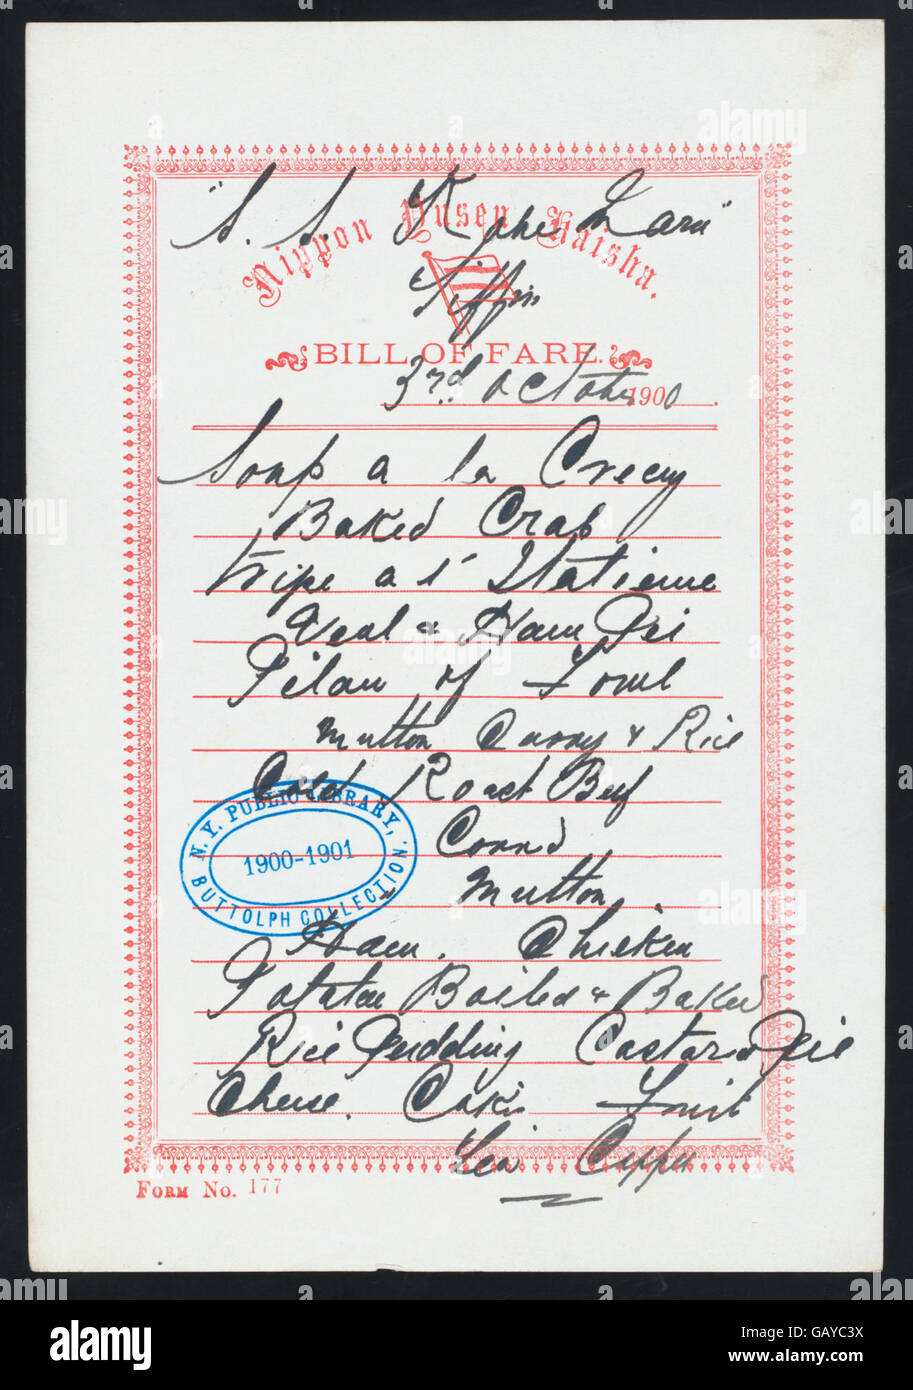 "S. S. Kobe Maru"
Nippon Yusen Kaisha.
Tiffin
BILL OF FARE.
3rd October 1900
Soup a la Crecy
Baked Crab
Tripe a l' Italienne
Veal & Ham Pei
Pilau of Fowl
Mutton Curry & Rice
Cold Roast Beef
Corned
Mutton
Ham. Chicken
Potatoe Boiled & Baked
Rice Pudding Castard Pie
Cheese. Cake Fruit
Tea Coffee
N.Y. PUBLIC LIBRARY,
1900-1901
BUTTOLPH COLLECTION.
FORM No. 177
alamy
alamy
alamy
Image ID: GAYC3X
www.alamy.com